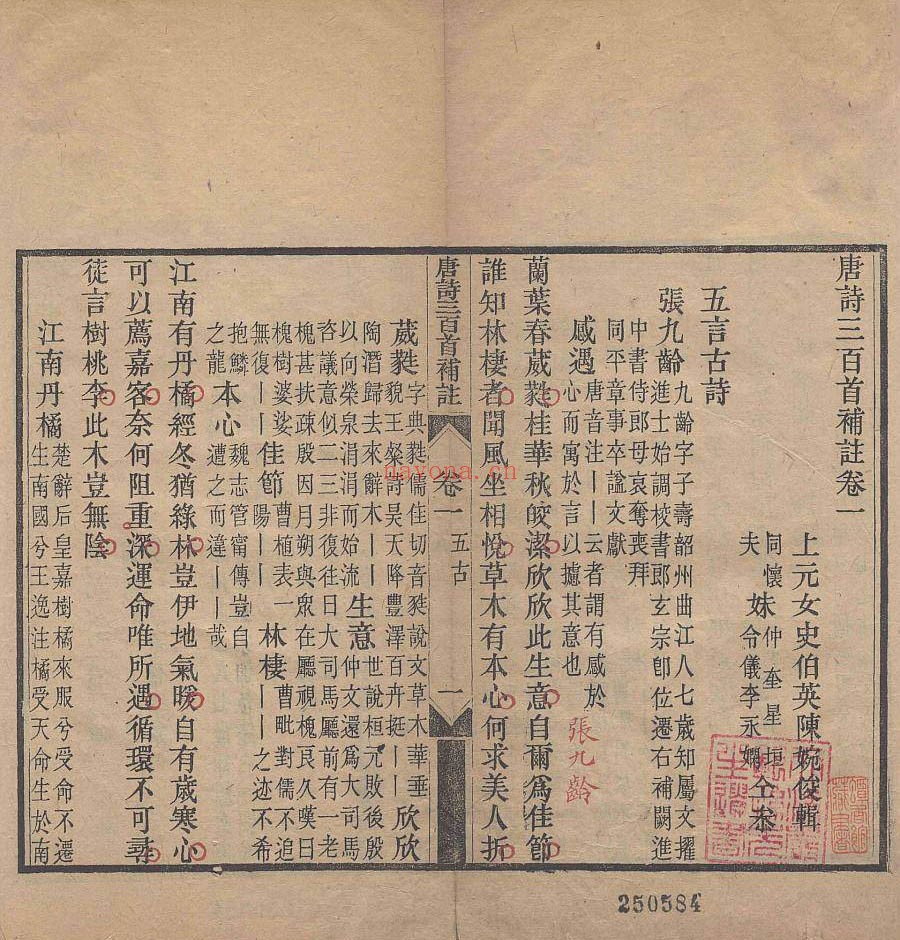 唐詩三百首補註卷一
上元女史伯英陳婉俊輯
同懷妹仲奎星垣
夫妹令儀李永嫻仝叅
五言古詩
張九齡九齡字子壽韶州曲江人七歲知屬文擢
進士始調校書郎玄宗卽位遷右補闕進
中書侍郎母哀奪喪拜
同平章事卒謚文獻
感遇唐音注丨丨云者謂有感於
心而寓於言以攄其意也
張九齡
蘭葉春葳蕤桂華秋皎潔欣欣此生意自爾爲佳節
誰知林棲者聞風坐相悅草木有本心何求美人折
唐詩三百首補註
卷一
五古
一
葳蕤字典蕤儒佳切音甤說文草木華垂
貌王粲詩昊天降豐澤百卉挺丨丨欣欣
陶潛歸去來辭木丨丨
以向榮泉涓涓而始流生意世說桓元敗後殷
仲文還爲大司馬
咨議意似二三非復往日大司馬廳前有一老
槐甚扶疎殷因月朔與衆在廳視槐良久嘆曰
槐樹婆娑
無復丨丨佳節曹植表一
陽丨丨林棲曹毗對儒不追
丨丨之迹不希
抱鱗
之龍本心魏志管甯傳豈自
遭之而違丨丨哉
江南有丹橘經冬猶綠林豈伊地氣暖自有歲寒心
可以薦嘉客奈何阻重深運命唯所遇循環不可尋
徒言樹桃李此木豈無陰
江南丹橘楚辭后皇嘉樹橘來服兮受命不遷
生南國兮王逸注橘受天命生於南
nayona.cn
250584